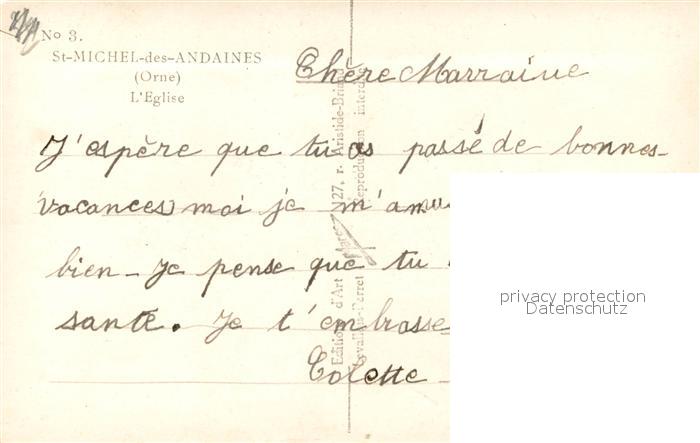 No 3.
St-MICHEL-des-ANDAINES
(Orne)
L'Eglise
Chère Marraine
J'espère que tu as passé de bonnes
vacances moi je m'amu
bien - je pense que tu
santé. Je t'embrasse
Colette
Edition d'Art 27, r. Aristide-Briand
Levallois-Perret Reproduction interdite
privacy protection
Datenschutz